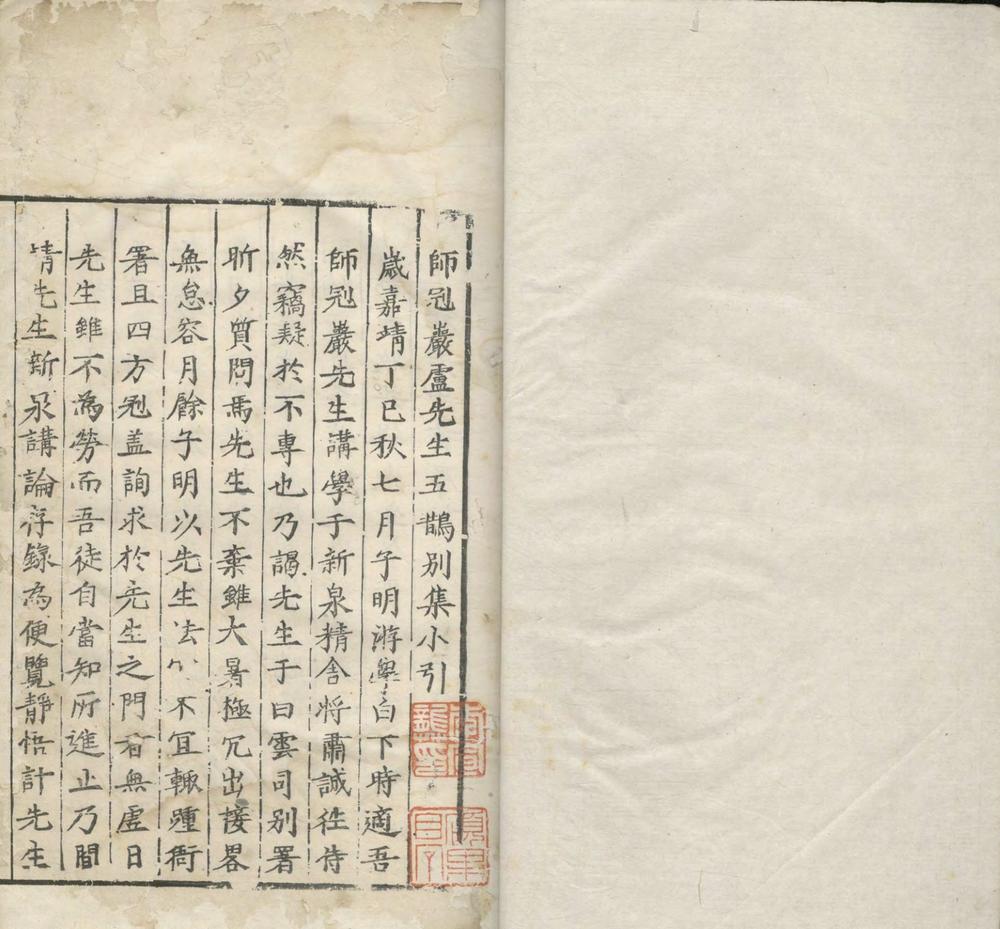 師冠巖盧先生五鵲別集小引
歲嘉靖丁巳秋七月子明游學白下時適吾
師冠巖先生講學于新泉精舍將肅誠往侍
然竊疑於不專也乃謁先生于白雲司別署
昕夕質問焉先生不棄雖大暑極冗出接畧
無怠容月餘子明以先生法 不宜輒踵衙
署且四方冠盖詢求於先生之門者無虛日
先生雖不為勞而吾徒自當知所進止乃間
請先生新泉講論存錄為便覽靜悟計先生